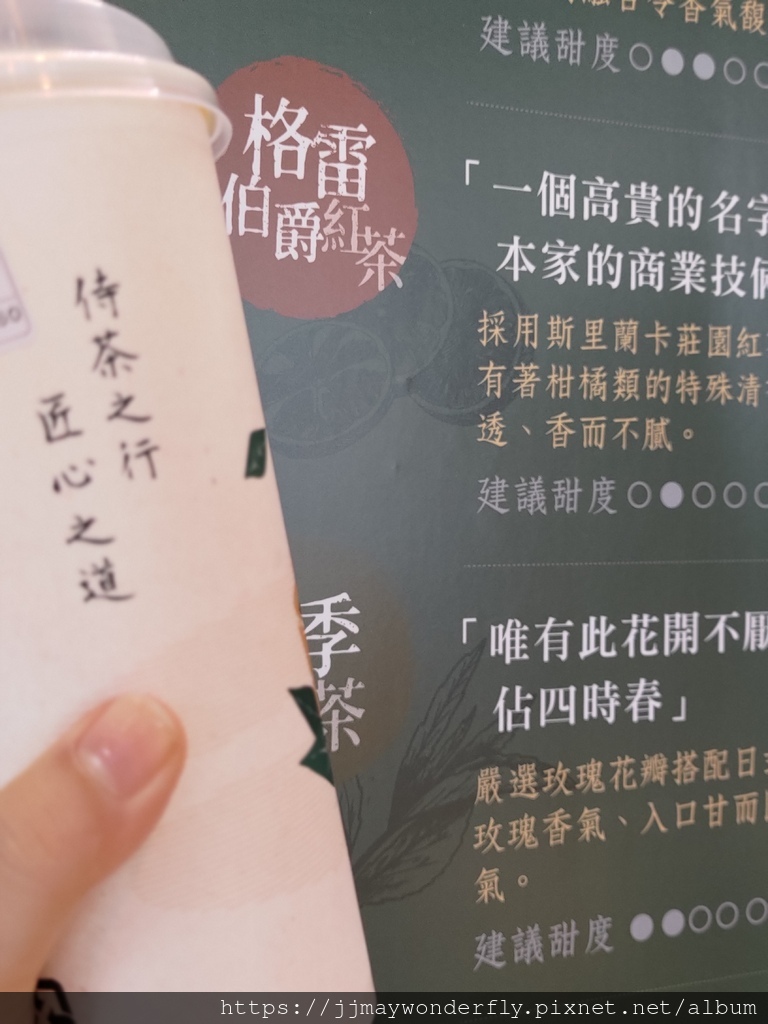 建議甜度
格雷
伯爵紅茶
「一個高貴的名字
本家的商業技倆
採用斯里蘭卡莊園紅
有著柑橘類的特殊清
透、香而不膩。
建議甜度
季
茶
「唯有此花開不厭
佔四時春」
嚴選玫瑰花瓣搭配日
玫瑰香氣、入口甘而
氣。
建議甜度
侍茶之行
匠心之道
https://jjmaywonderfly.pixnet.net/album